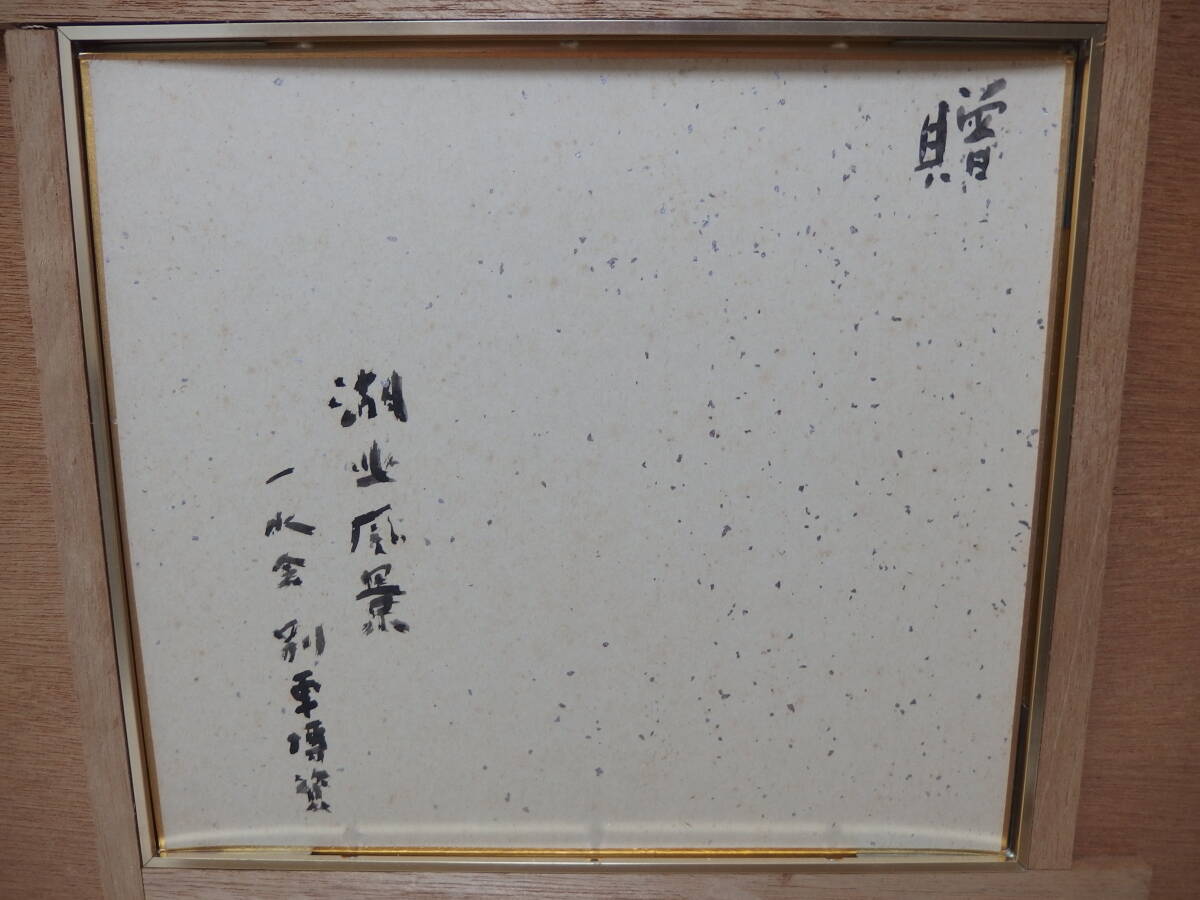 贈
湖上風景
一水会 別車博資